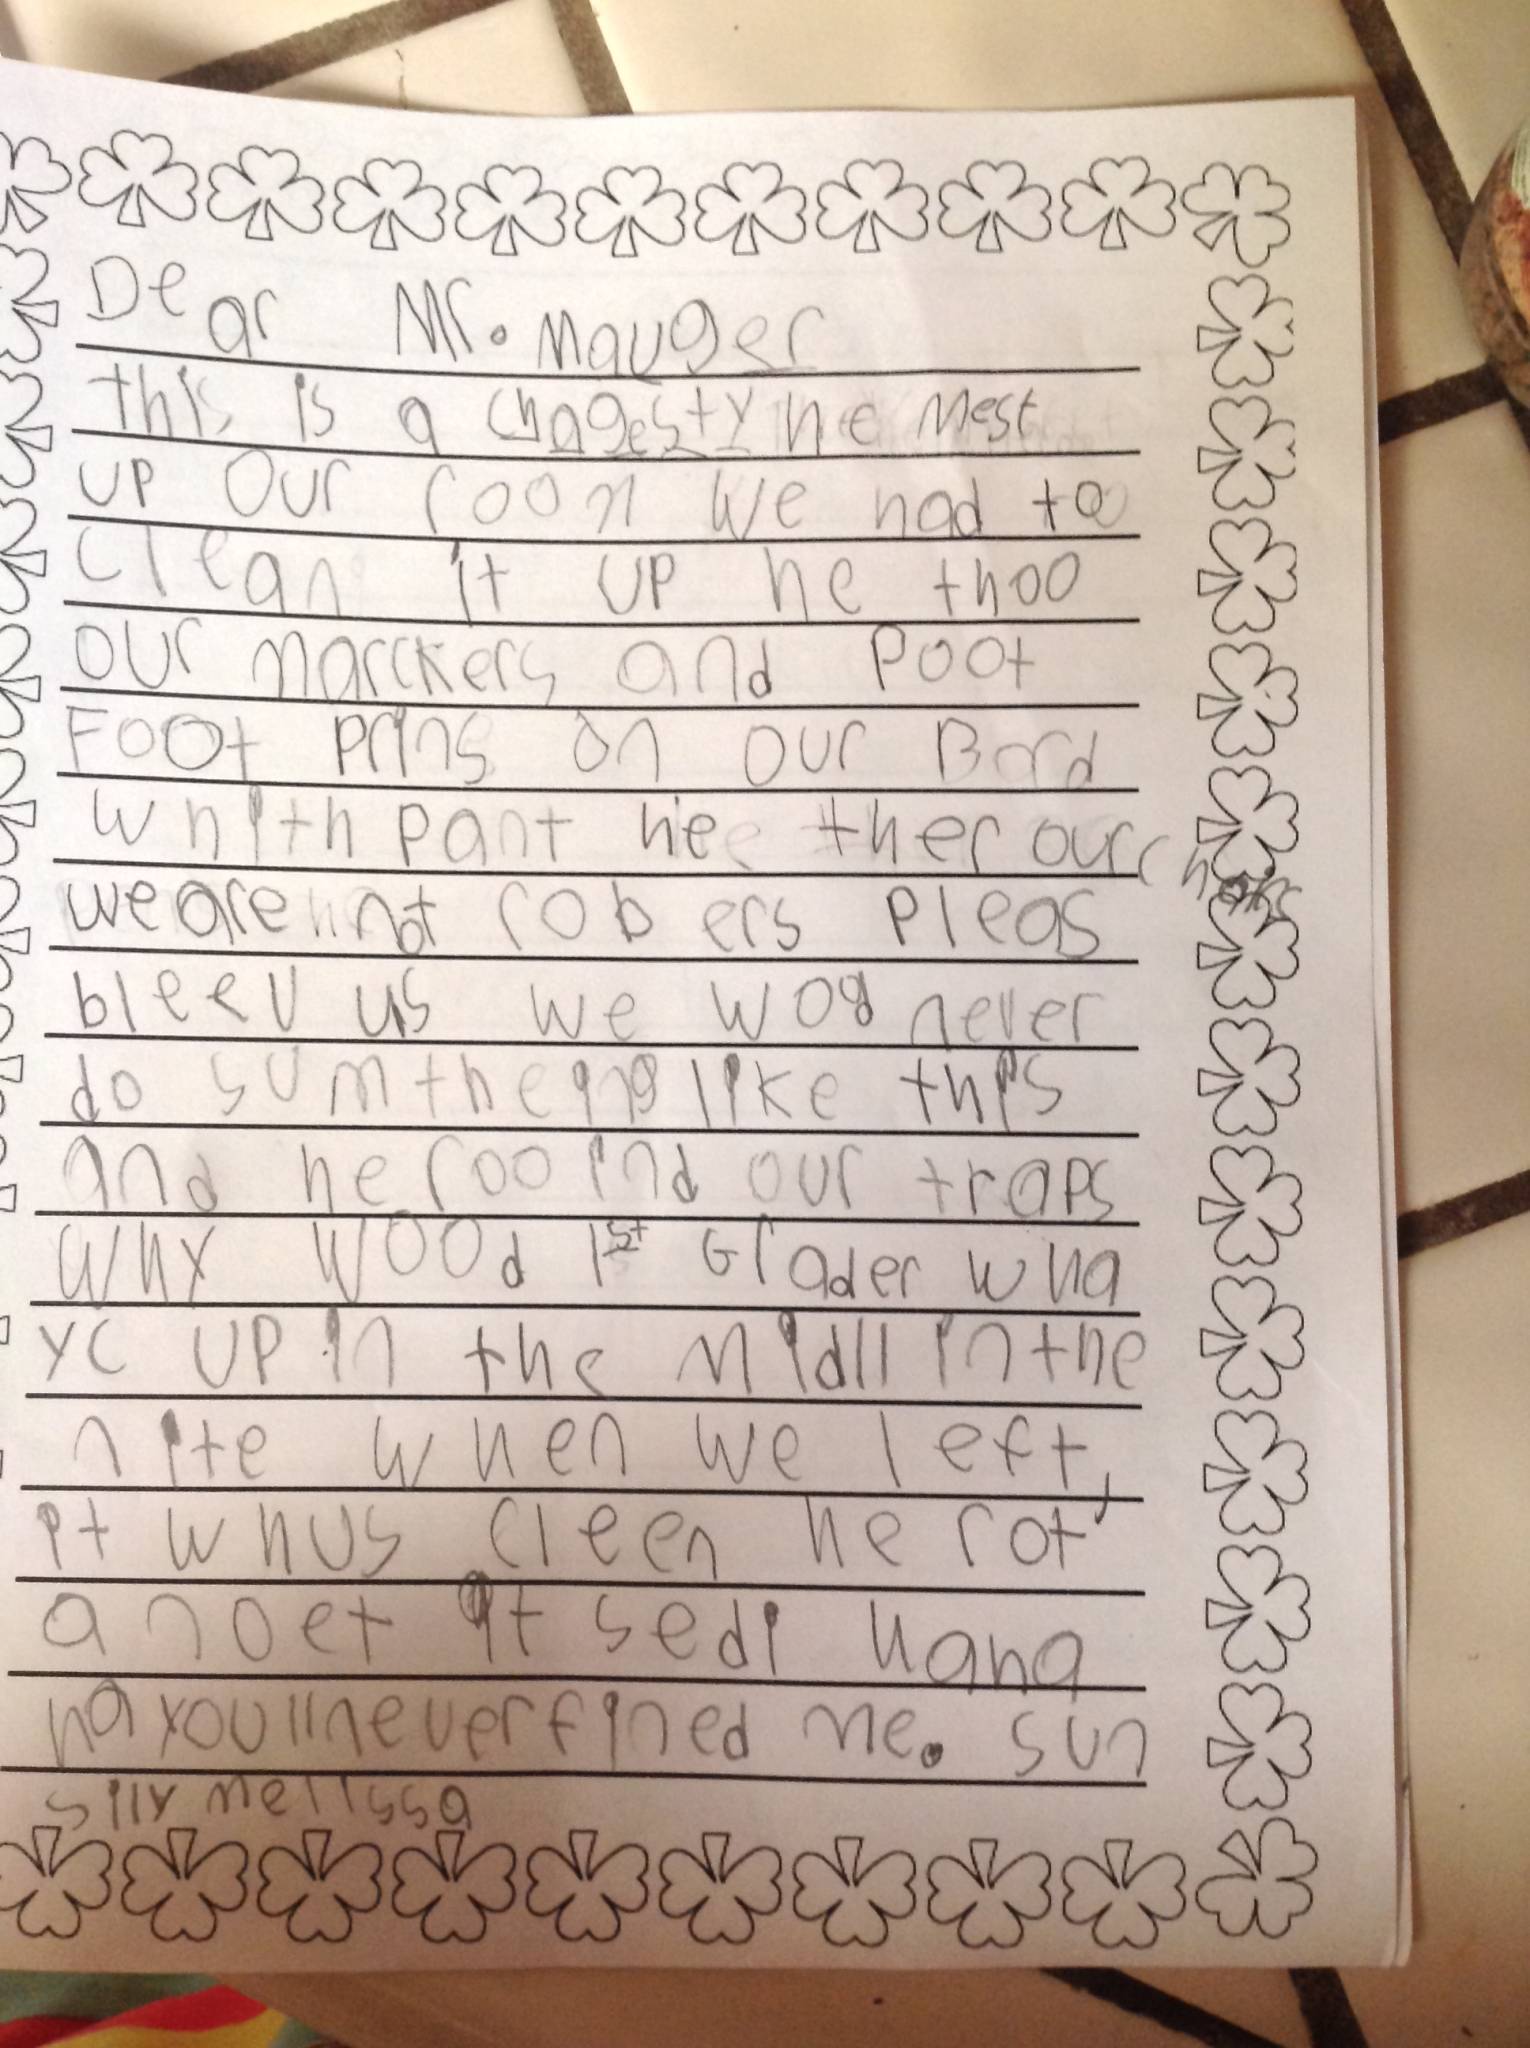 Dear Mr. Mauger
this is a chagesty he mest
up our room we had to
clean it up he thoo
our marckers and poot
Foot prins on our Bord
whith pant he ther our chars
we are not robers pleas
bleev us we wod never
do sumtheing like this
and he rooind our traps
why wood 1st Grader wha
yc up in the midll in the
nite when we left,
it whus cleen he rot
a noet it sedi hana
ha youll never fined me. sun
silly melissa